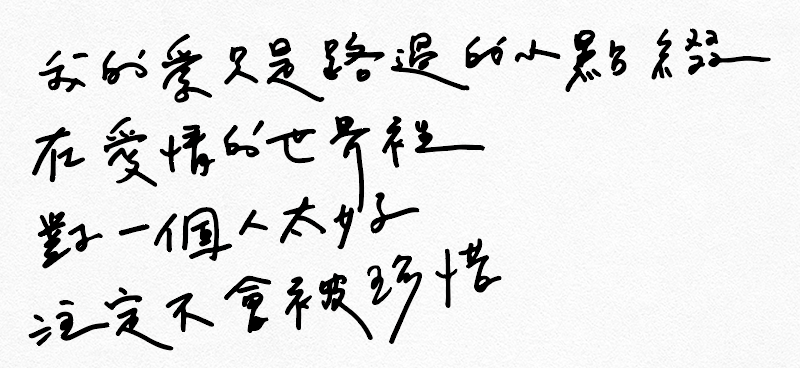 我的愛只是路過的小點綴
在愛情的世界裡
對一個人太好
注定不會被珍惜